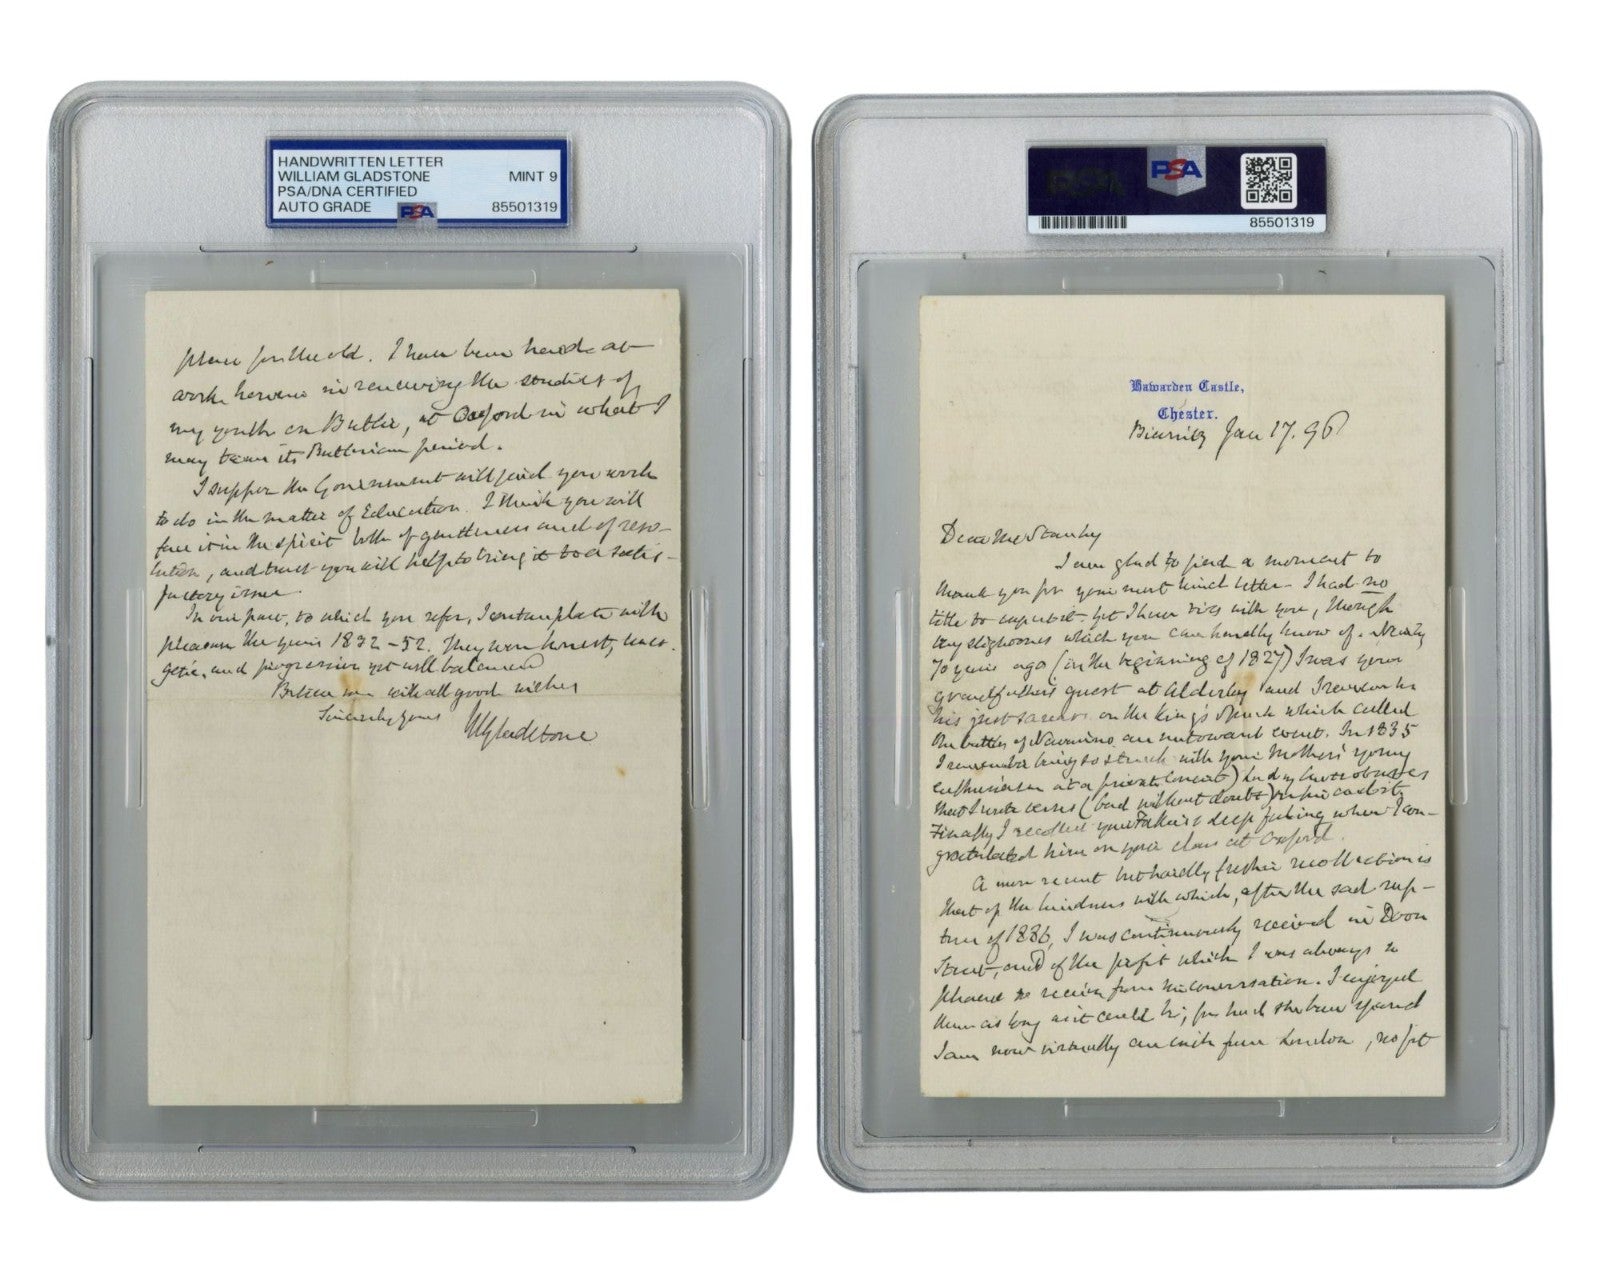 HANDWRITTEN LETTER
WILLIAM GLADSTONE MINT 9
PSA/DNA CERTIFIED
AUTO GRADE PSA 85501319
place for the old. I have been hard at
work here in renewing the studies of
my youth on Butler, at Oxford in what I
may term its Butlerian period.
I suppose the Government will find you work
to do in the matter of Education. I think you will
face it in the spirit both of gentleness and of reso-
lution, and trust you will help to bring it to a satis-
factory issue.
In our past, to which you refer, I contemplate with
pleasure the years 1832-52. They were honest, ener-
getic, and progressive yet well balanced
Believe me with all good wishes
Sincerely yours WGladstone
PSA
85501319
Hawarden Castle,
Chester.
Biarritz Jan 17. 96
Dear Mr Stanley
I am glad to find a moment to
thank you for your most kind letter. I had no
title to expect it. Yet I have ties with you, though
very slight ones which you can hardly know of. Nearly
70 years ago (in the beginning of 1827) I was your
grandfather's guest at Alderley and I remember
his just on the King's Speech which called
the battle of Navarino an untoward event. In 1835
I remember being so struck with your Mother's young
enthusiasm at a private concert
that I wrote verses (bad without doubt)
Finally I recollect your Father's deep feeling when I con-
gratulated him on your class at Oxford.
A more recent but hardly fresher recollection is
that of the kindness with which, after the sad rup-
ture of 1886, I was continuously received in Dover
Street, and of the profit which I was always
pleased to receive from the conversation. I enjoyed
them as long as it could be; for had she been spared
I am now virtually an exile from London, no fit